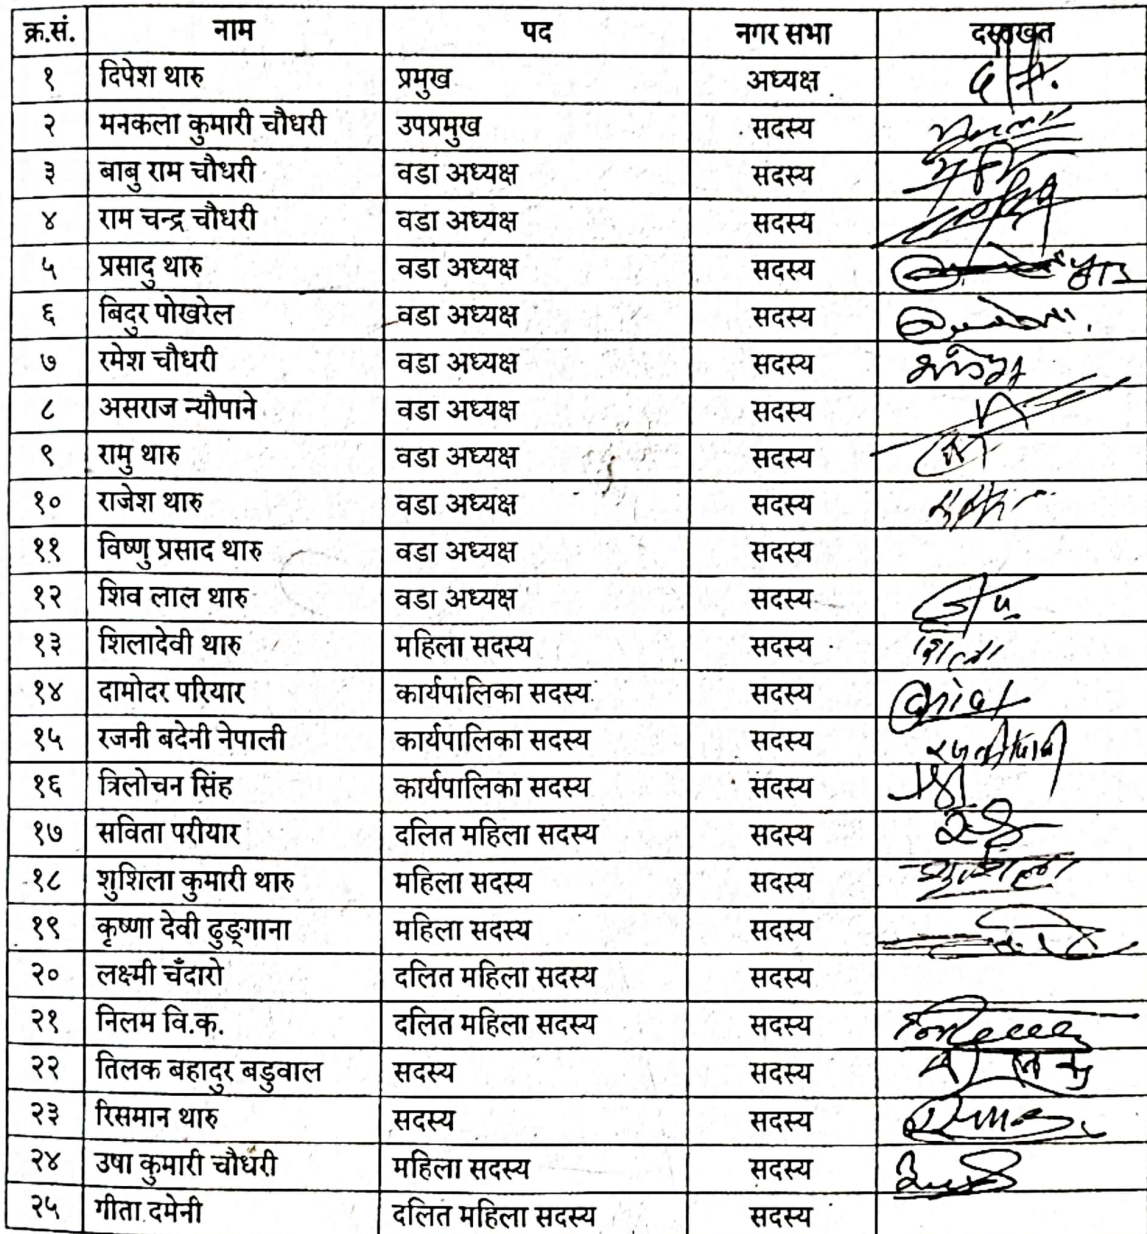 क्र.सं. नाम पद नगर सभा दस्तखत
१ दिपेश थारु प्रमुख अध्यक्ष
२ मनकला कुमारी चौधरी उपप्रमुख सदस्य
३ बाबु राम चौधरी वडा अध्यक्ष सदस्य
४ राम चन्द्र चौधरी वडा अध्यक्ष सदस्य
५ प्रसादु थारु वडा अध्यक्ष सदस्य
६ बिदुर पोखरेल वडा अध्यक्ष सदस्य
७ रमेश चौधरी वडा अध्यक्ष सदस्य
८ असराज न्यौपाने वडा अध्यक्ष सदस्य
९ रामु थारु वडा अध्यक्ष सदस्य
१० राजेश थारु वडा अध्यक्ष सदस्य
११ विष्णु प्रसाद थारु वडा अध्यक्ष सदस्य
१२ शिव लाल थारु वडा अध्यक्ष सदस्य
१३ शिलादेवी थारु महिला सदस्य सदस्य
१४ दामोदर परियार कार्यपालिका सदस्य सदस्य
१५ रजनी बदेनी नेपाली कार्यपालिका सदस्य सदस्य
१६ त्रिलोचन सिंह कार्यपालिका सदस्य सदस्य
१७ सविता परीयार दलित महिला सदस्य सदस्य
१८ शुशिला कुमारी थारु महिला सदस्य सदस्य
१९ कृष्णा देवी ढुङ्गाना महिला सदस्य सदस्य
२० लक्ष्मी चँदारो दलित महिला सदस्य सदस्य
२१ निलम वि.क. दलित महिला सदस्य सदस्य
२२ तिलक बहादुर बडुवाल सदस्य सदस्य
२३ रिसमान थारु सदस्य सदस्य
२४ उषा कुमारी चौधरी महिला सदस्य सदस्य
२५ गीता दमेनी दलित महिला सदस्य सदस्य